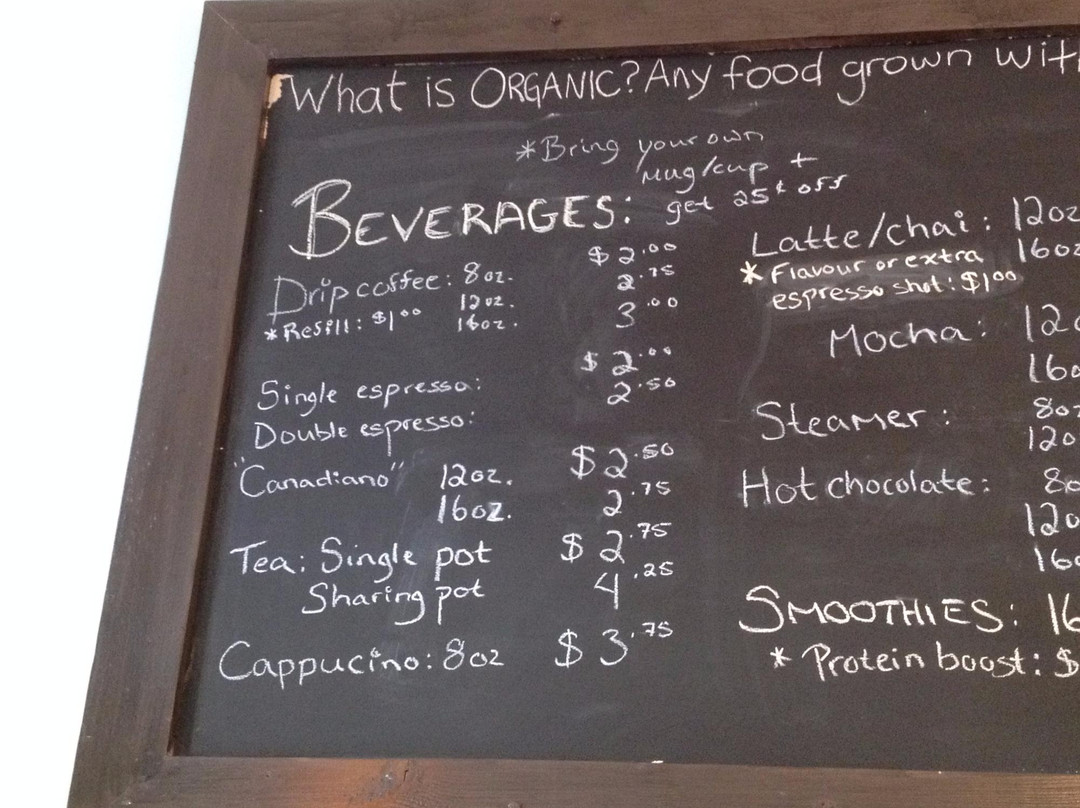 What is ORGANIC? Any food grown
*Bring your own
mug/cup +
get 25¢ off
BEVERAGES:
Drip coffee: 8oz. $2.00
12oz. 2.75
*Refill: $1.00 16oz. 3.00
Single espresso: $2.00
Double espresso: 2.50
"Canadiano" 12oz. $2.50
16oz. 2.75
Tea: Single pot $2.75
Sharing pot 4.25
Cappucino: 8oz $3.75
Latte/chai: 12oz
16oz
*Flavour or extra
espresso shot: $1.00
Mocha: 12
16
Steamer: 8oz
12
Hot chocolate: 8
12
16
SMOOTHIES: 16
* Protein boost: $